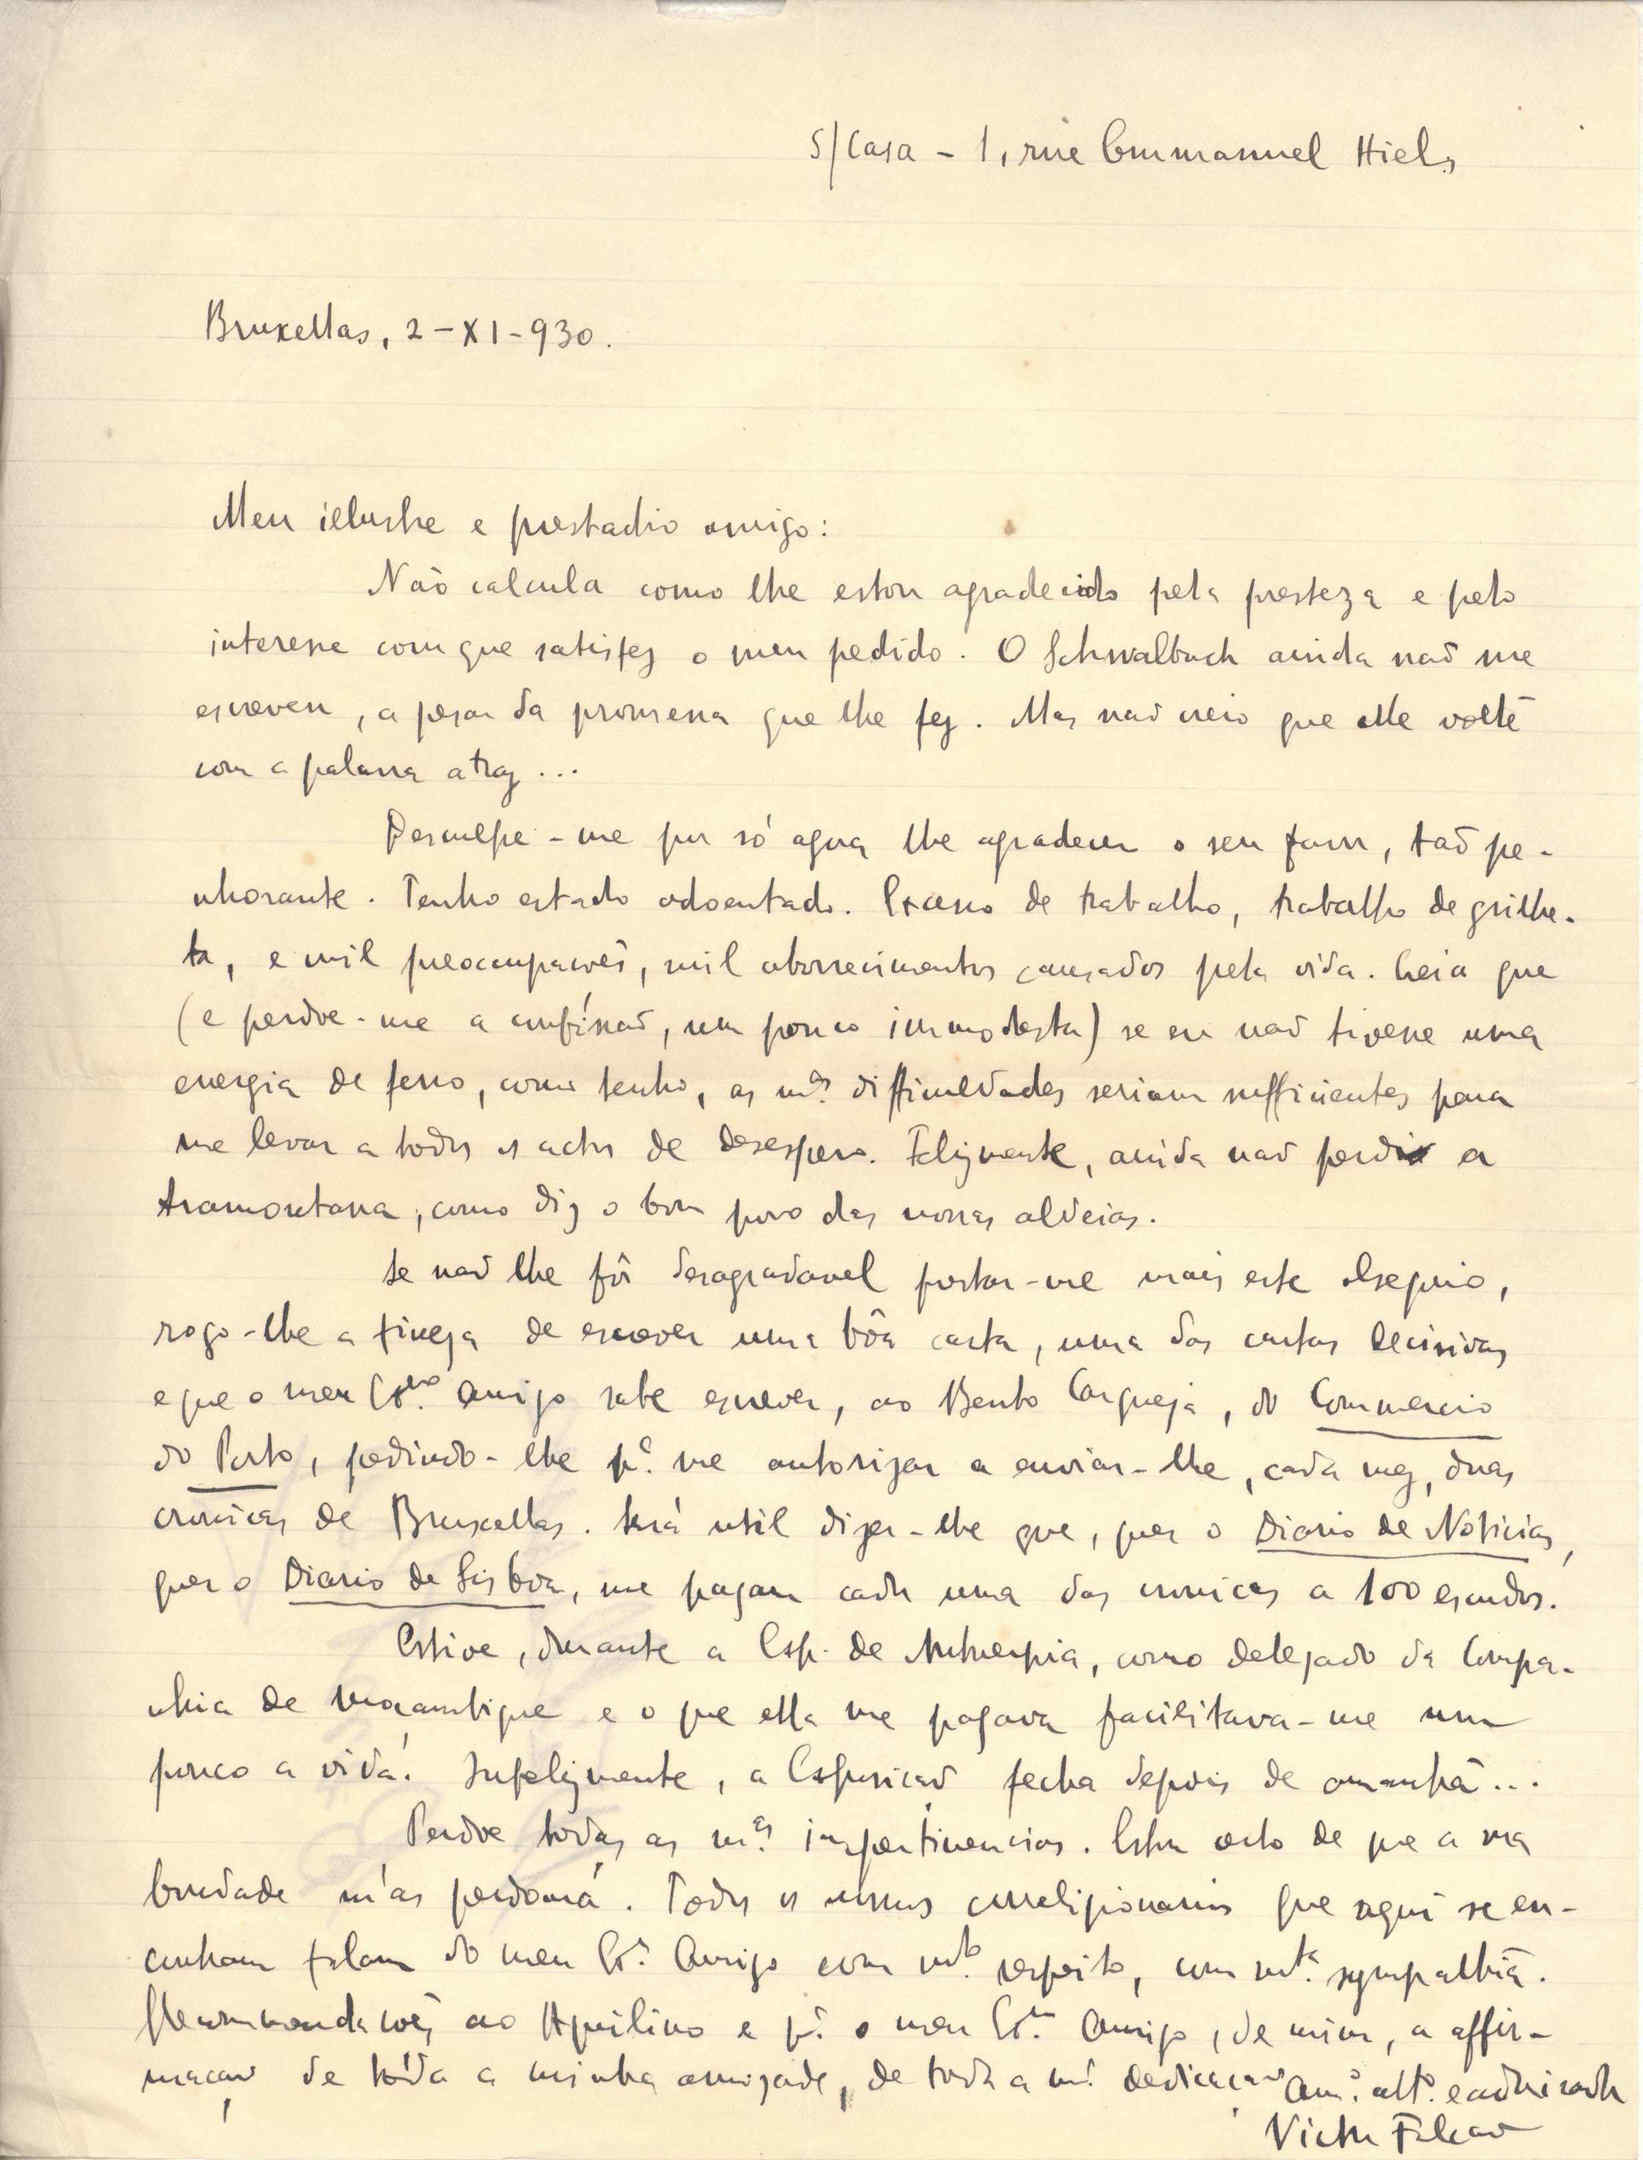 S/Casa - 1, rue Emmanuel Hiels
Bruxellas, 2-XI-930.
Meu illustre e prestadio amigo:
Não calcula como lhe estou agradecido pela presteza e pelo
interesse com que satisfez o meu pedido. O Schwalbach ainda não me
escreveu, a pesar da promessa que lhe fez. Mas não creio que elle volte
com a palavra atraz...
Desculpe-me por só agora lhe agradecer o seu favor, tão pe-
nhorante. Tenho estado adoentado. Excesso de trabalho, trabalho de grilhe-
ta, e mil preocupações, mil aborrecimentos causados pela vida. Creia que
(e perdoe-me a confissão, um pouco immodesta) se eu não tivesse uma
energia de ferro, como tenho, as m.as difficuldades seriam sufficientes para
me levar a todos os actos de desespero. Felizmente, ainda não perdi a
tramontana, como diz o bom povo das nossas aldeias.
Se não lhe fôr desagradavel prestar-me mais este obsequio,
rogo-lhe a fineza de escrever uma bôa carta, uma das cartas decisivas
e que o meu Ex.mo Amigo sabe escrever, ao Bento Carqueja, do Commercio
do Porto, pedindo-lhe p.a me autorizar a enviar-lhe, cada mez, duas
cronicas de Bruxellas. Será util dizer-lhe que, quer o Diario de Noticias,
quer o Diario de Lisboa, me pagam cada uma das cronicas a 100 escudos.
Estive, durante a Exp. de Antuerpia, como delegado da Compa-
nhia de Moçambique e o que ella me pagava facilitava-me um
pouco a vida. Infelizmente, a Exposição fecha depois de amanhã...
Perdoe todas as m.as impertinencias. Estou certo de que a sua
bondade m'as perdoará. Todos os nossos correligionarios que aqui se en-
contram falam do meu Ex.mo Amigo com m.to respeito, com m.ta sympathia.
Recommendações ao Aquilino e p.a o meu Ex.mo Amigo, de mim, a affir-
mação de tôda a minha amizade, de toda a m.a dedicação Am.o att.o e admirador
Victor Falcão